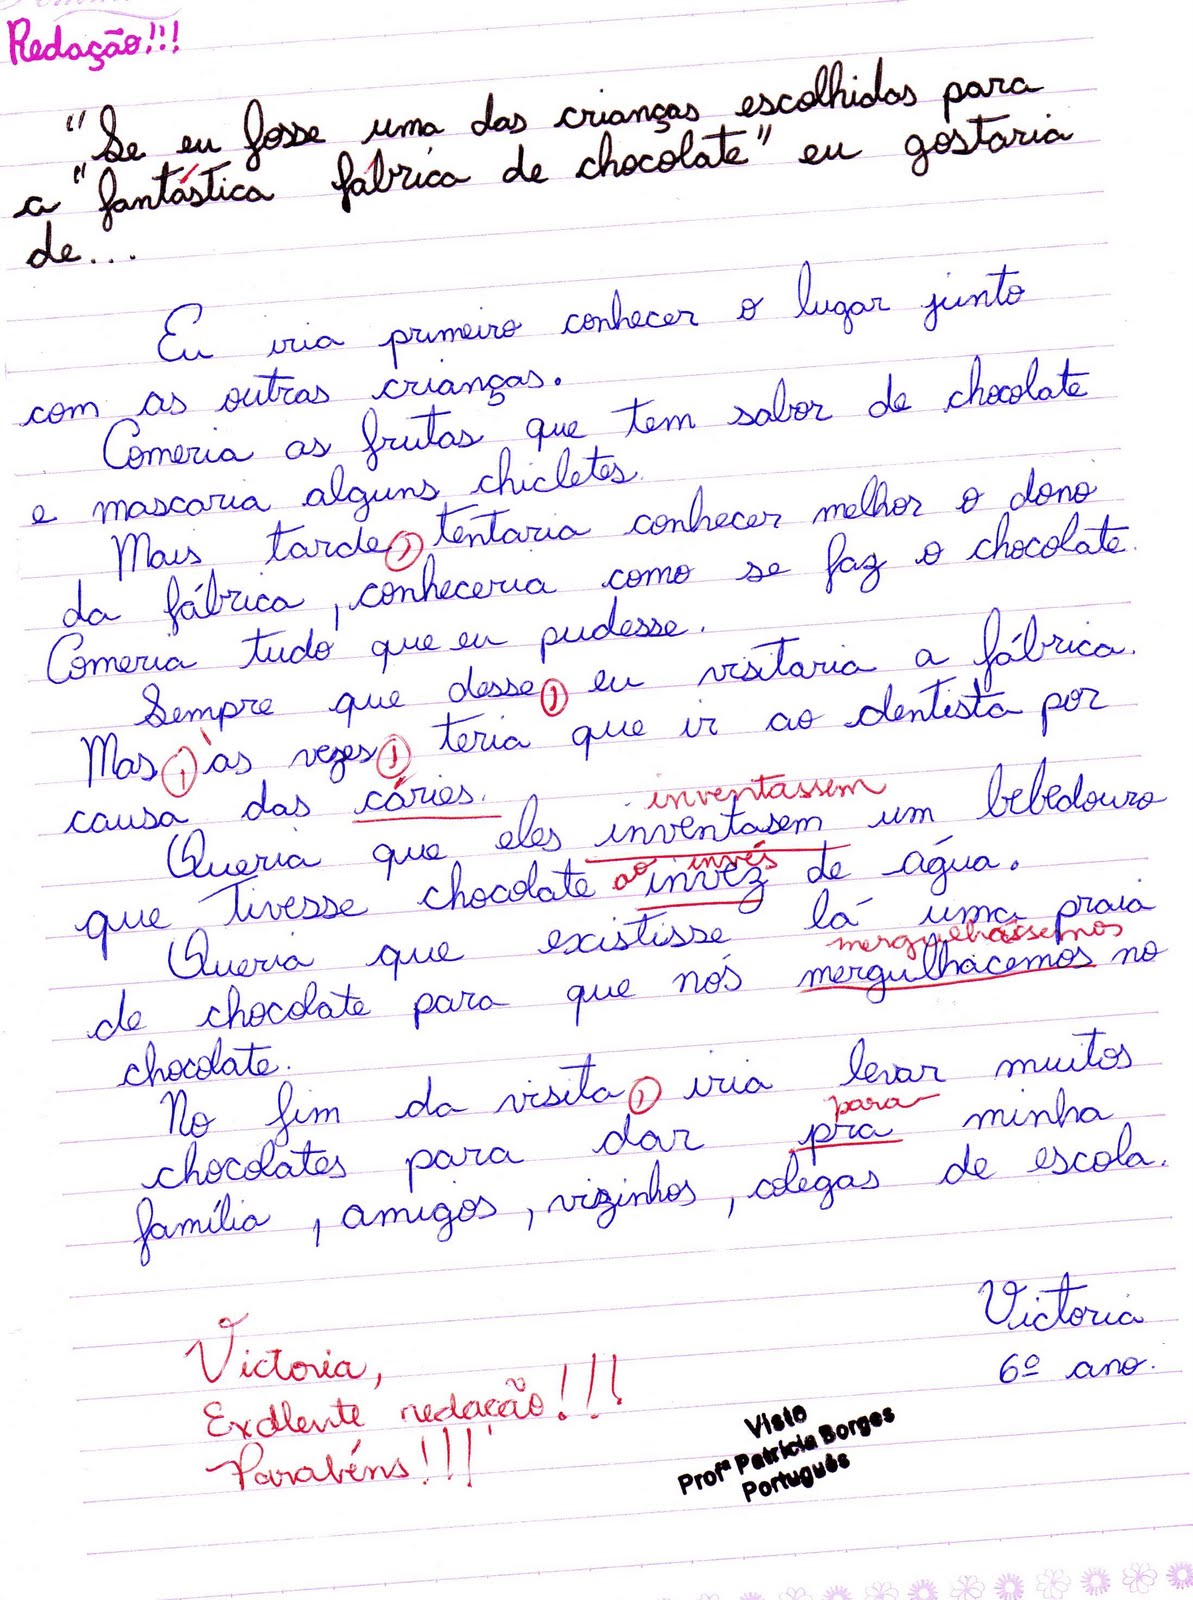 Redação!!!
"Se eu fosse uma das crianças escolhidas para
a "fantástica fábrica de chocolate" eu gostaria
de...
Eu iria primeiro conhecer o lugar junto
com as outras crianças.
Comeria as frutas que tem sabor de chocolate
e mascaria alguns chicletes.
Mais tarde, tentaria conhecer melhor o dono
da fábrica, conheceria como se faz o chocolate.
Comeria tudo que eu pudesse.
Sempre que desse, eu visitaria a fábrica.
Mas, às vezes, teria que ir ao dentista por
causa das cáries.
inventassem
Queria que eles inventasem um bebedouro
ao invés
que tivesse chocolate invez de água.
Queria que existisse lá uma praia
mergulhássemos
de chocolate para que nós mergulhacemos no
chocolate.
No fim da visita, iria levar muitos
para
chocolates para dar pra minha
família, amigos, vizinhos, colegas de escola.
Victoria
6º ano.
Victoria,
Exellente redação!!!
Parabéns!!!
Visto
Profª Patrícia Borges
Português